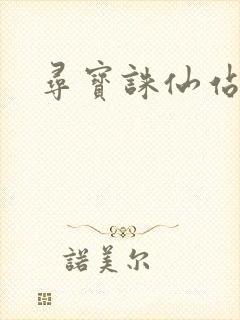 尋寶誅仙佔
諾美尔